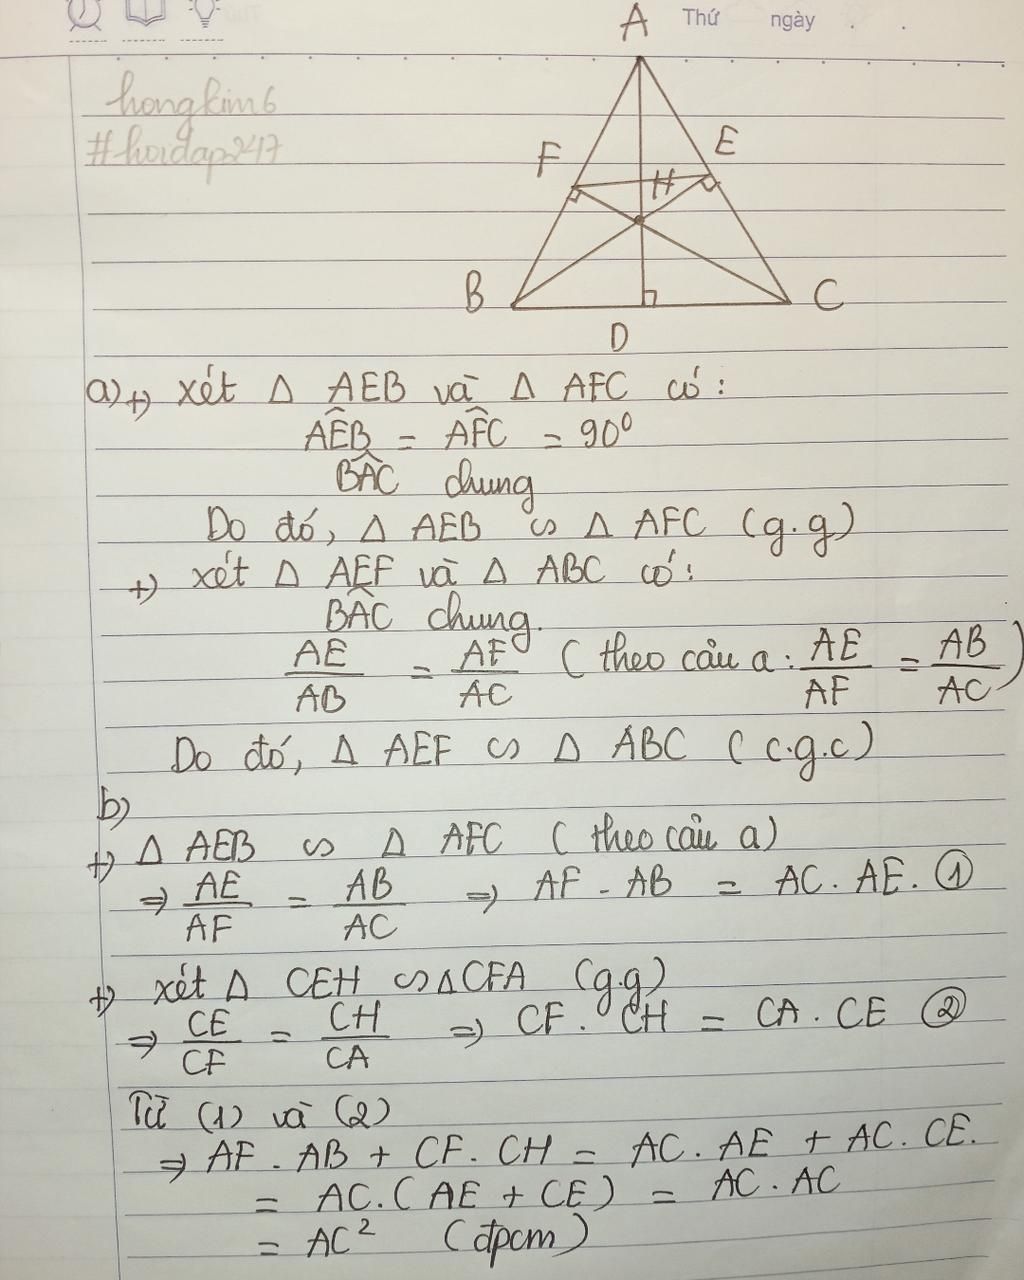 Thứ ngày . .
hongkim6
#hoidap247
A
F E
H
B C
D
a) +) xét Δ AEB và Δ AFC có:
AÊB = AF̂C = 90⁰
BÂC chung
Do đó, Δ AEB ∽ Δ AFC (g.g)
+) xét Δ AEF và Δ ABC có:
BÂC chung.
AE/AB = AF/AC (theo câu a: AE/AF = AB/AC)
Do đó, Δ AEF ∽ Δ ABC (c.g.c)
b)
+) Δ AEB ∽ Δ AFC (theo câu a)
⇒ AE/AF = AB/AC ⇒ AF . AB = AC . AE. ①
+) xét Δ CEH ∽ Δ CFA (g.g)
⇒ CE/CF = CH/CA ⇒ CF . CH = CA . CE ②
Từ (1) và (2)
⇒ AF . AB + CF . CH = AC . AE + AC . CE.
= AC.(AE + CE) = AC . AC
= AC² (đpcm)